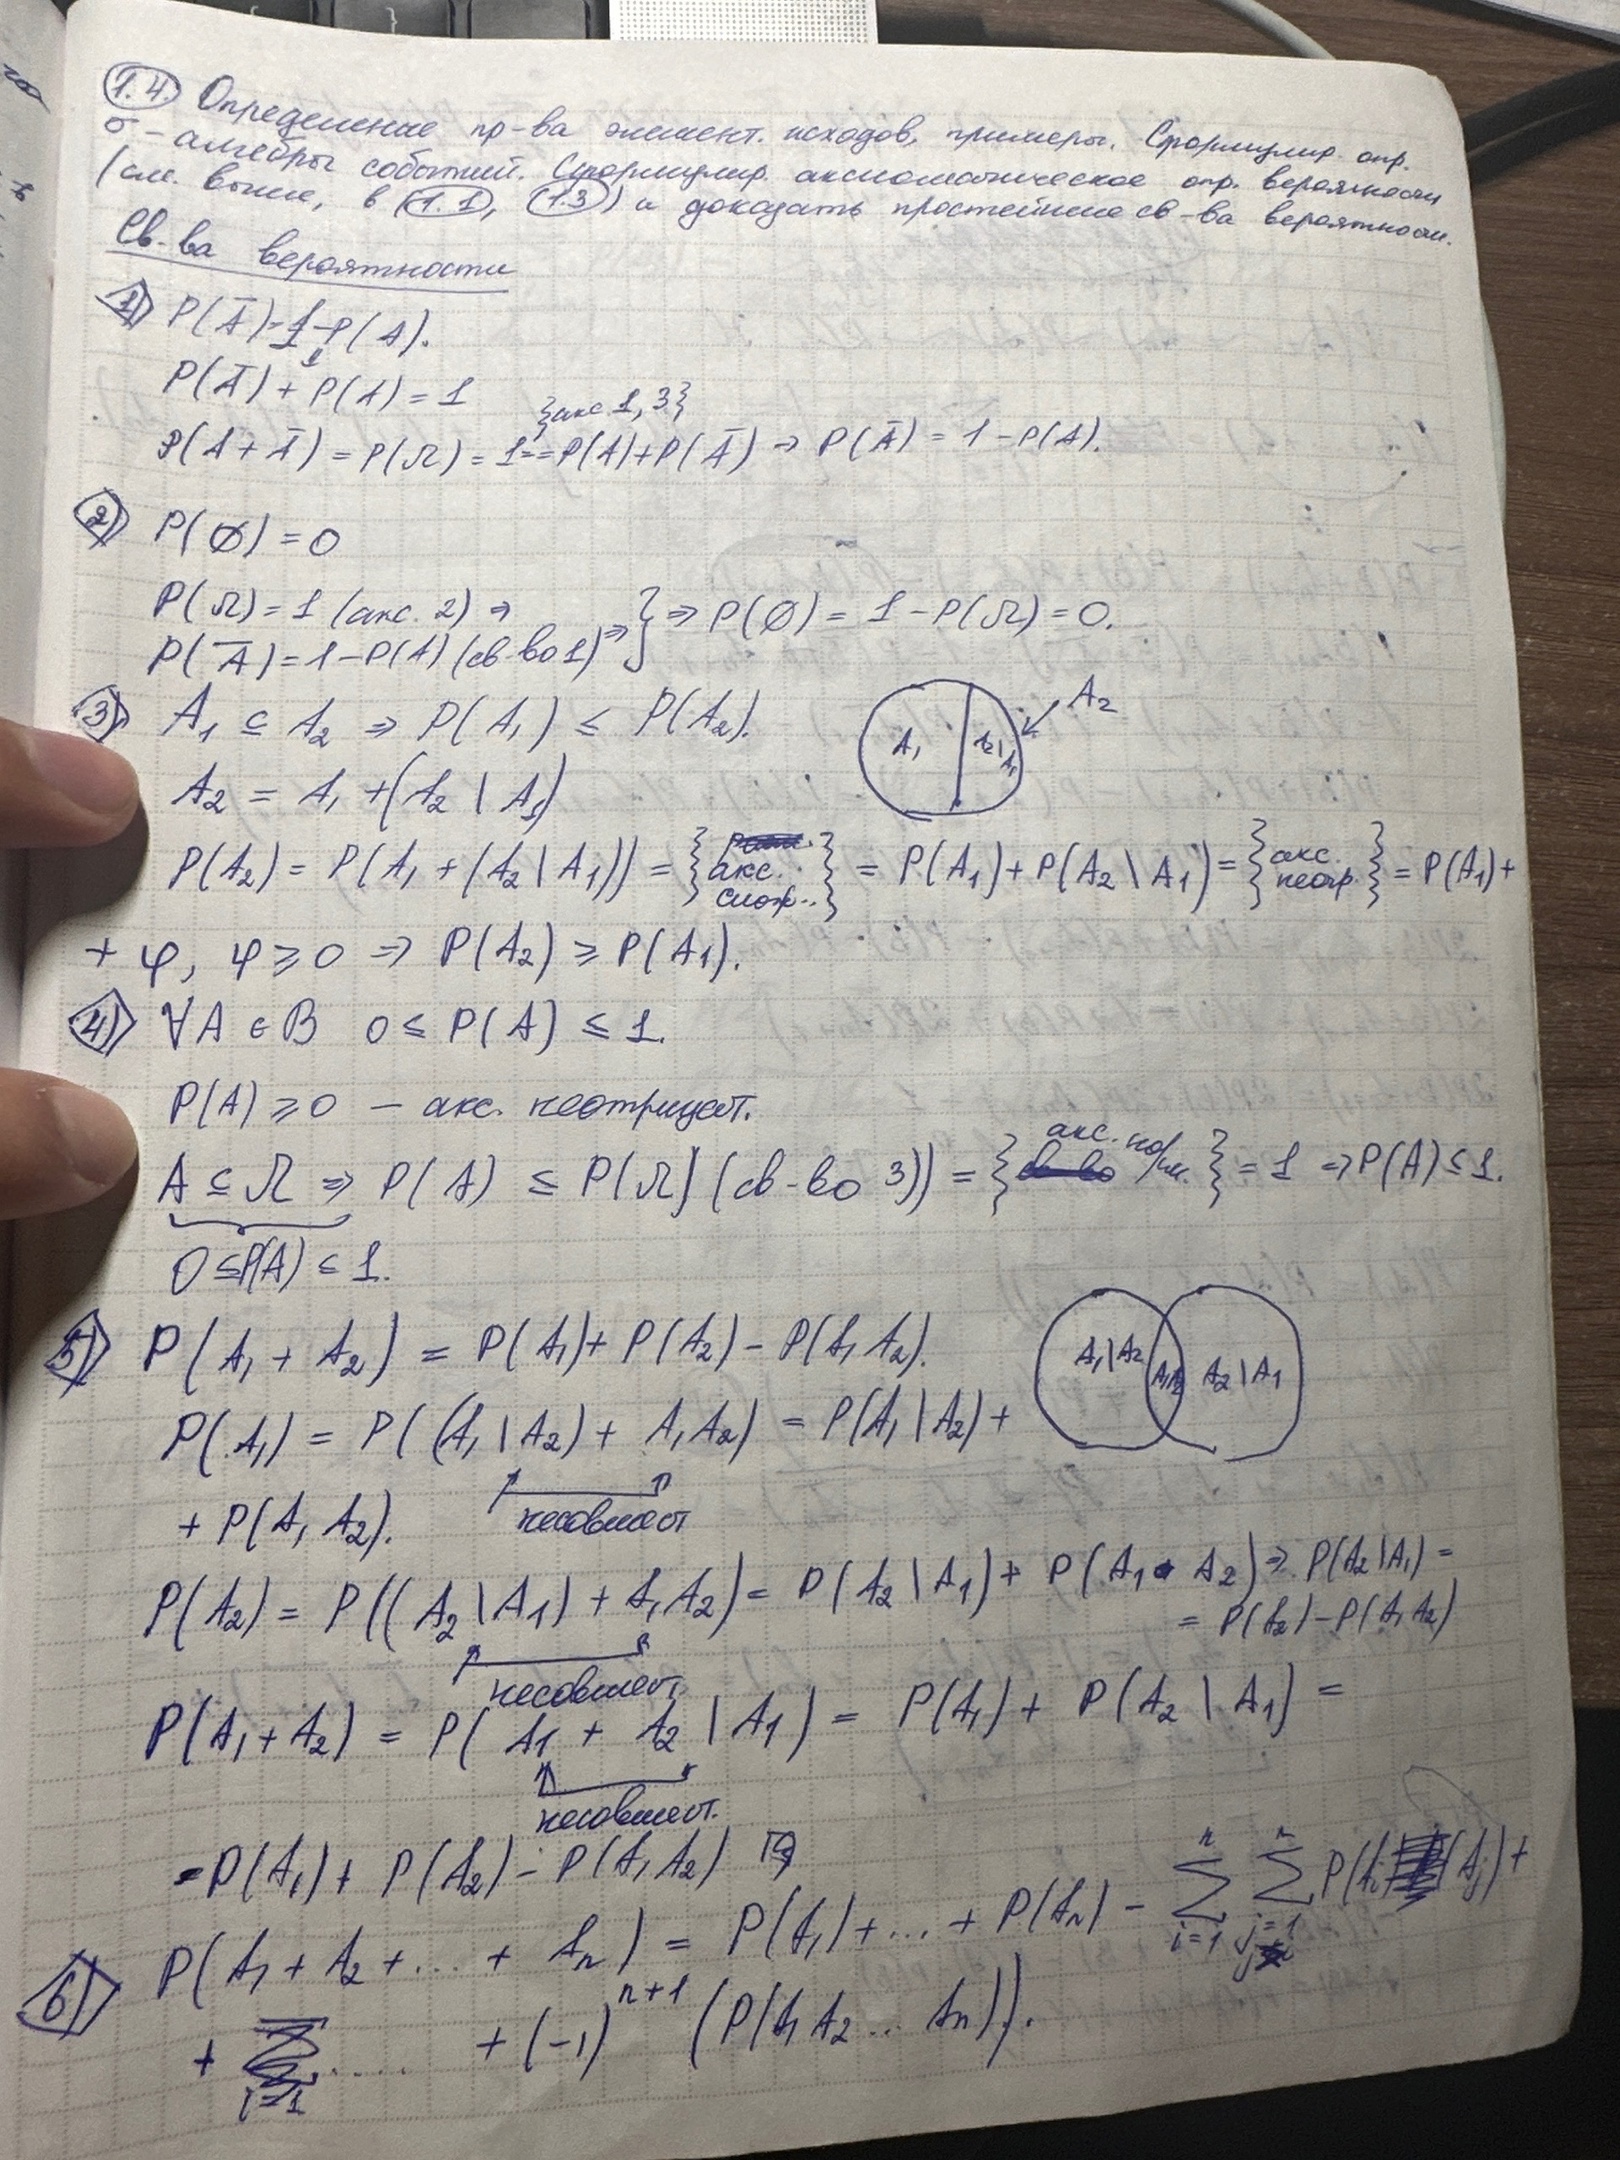 1.4. Определение пр-ва элемент. исходов, примеры. Сформулир. опр.
σ-алгебры событий. Сформулир. аксиоматическое опр. вероятности
(см. выше, в 1.1, 1.3) и доказать простейшие св-ва вероятности.
Св-ва вероятности
1) P(Ā) = 1 - P(A).
P(Ā) + P(A) = 1
{акс. 1, 3}
P(A + Ā) = P(Ω) = 1 = P(A) + P(Ā) ⇒ P(Ā) = 1 - P(A).
2) P(∅) = 0
P(Ω) = 1 (акс. 2) ⇒
P(Ā) = 1 - P(A) (св-во 1) ⇒ } ⇒ P(∅) = 1 - P(Ω) = 0.
3) A₁ ⊆ A₂ ⇒ P(A₁) ≤ P(A₂).
A₂
A₁ A₂\A₁
A₂ = A₁ + (A₂ \ A₁)
P(A₂) = P(A₁ + (A₂ \ A₁)) = { акс. слож. } = P(A₁) + P(A₂ \ A₁) = { акс. неотр. } = P(A₁) +
+ φ, φ ≥ 0 ⇒ P(A₂) ≥ P(A₁).
4) ∀A ∈ B 0 ≤ P(A) ≤ 1.
P(A) ≥ 0 — акс. неотрицат.
A ⊆ Ω ⇒ P(A) ≤ P(Ω) (св-во 3)) = { акс. норм. } = 1 ⇒ P(A) ≤ 1.
0 ≤ P(A) ≤ 1.
5) P(A₁ + A₂) = P(A₁) + P(A₂) - P(A₁A₂).
A₁\A₂ A₁A₂ A₂\A₁
P(A₁) = P((A₁ \ A₂) + A₁A₂) = P(A₁ \ A₂) +
несовмест
+ P(A₁A₂).
P(A₂) = P((A₂ \ A₁) + A₁A₂) = P(A₂ \ A₁) + P(A₁ · A₂) ⇒ P(A₂ \ A₁) =
= P(A₂) - P(A₁A₂)
несовмест.
P(A₁ + A₂) = P(A₁ + A₂ \ A₁) = P(A₁) + P(A₂ \ A₁) =
несовмест.
= P(A₁) + P(A₂) - P(A₁A₂)
6) P(A₁ + A₂ + ... + Aₙ) = P(A₁) + ... + P(Aₙ) - ∑ⁿᵢ₌₁ ∑ⁿⱼ₌₁ P(Aᵢ Aⱼ) +
+ ..... + (-1)ⁿ⁺¹ (P(A₁A₂...Aₙ)).